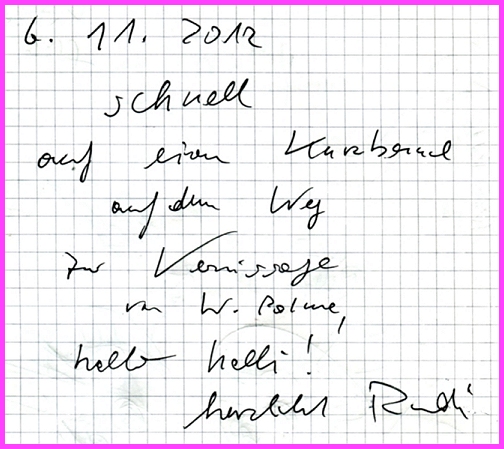 6. 11. 2012
schnell
auf einen Kurzbesuch
auf dem Weg
zur Vernissage
von W.
hallo helli!
herzlichst Rudi